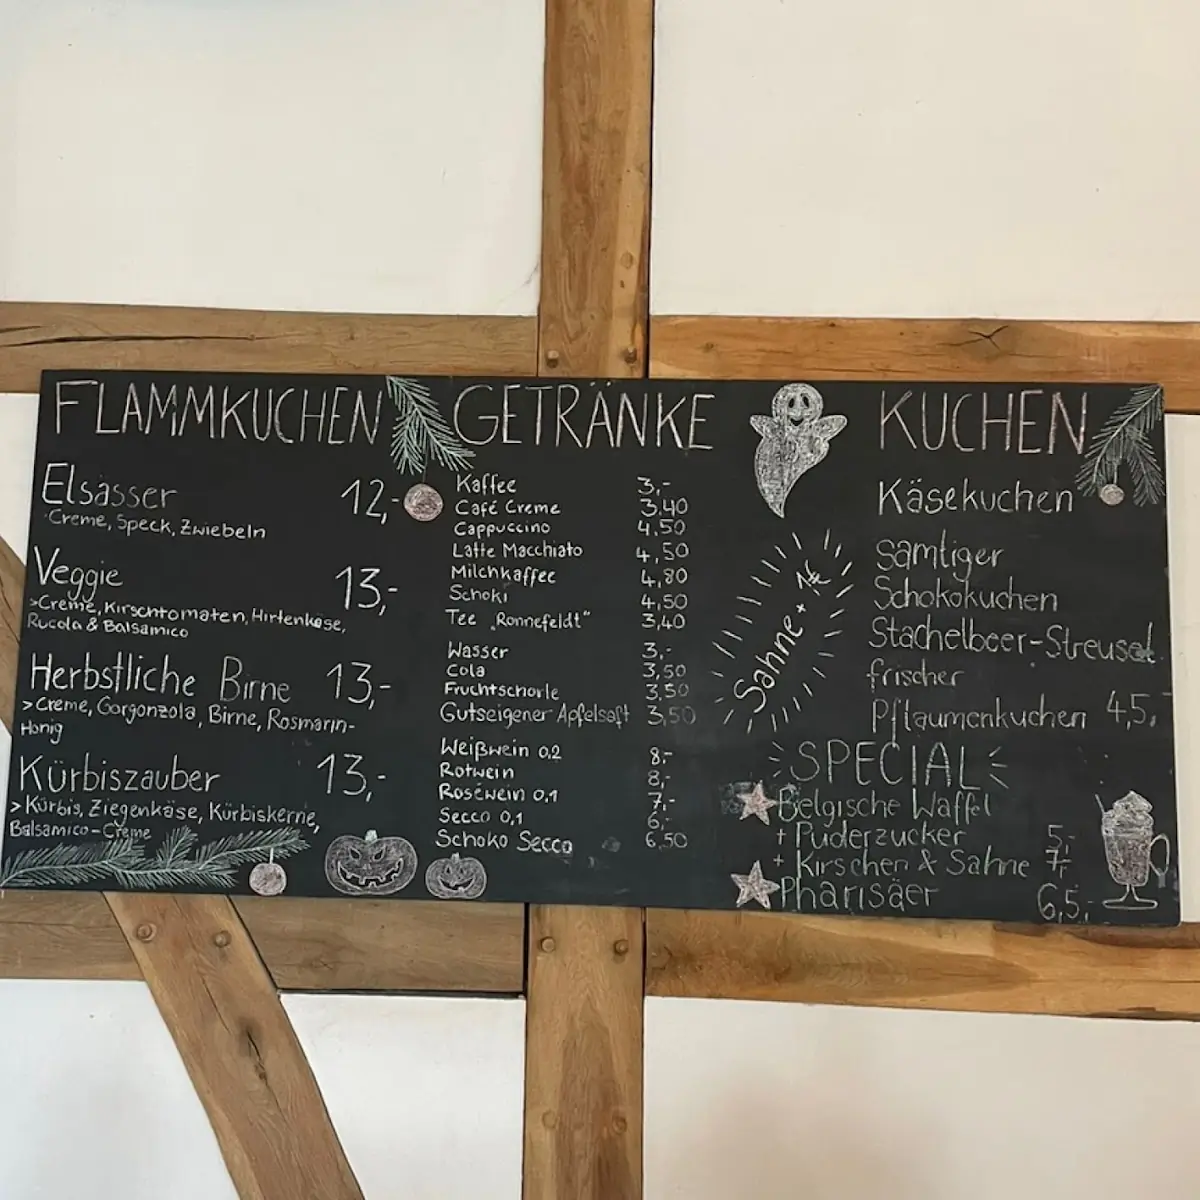 FLAMMKUCHEN
Elsässer 12,-
Creme, Speck, Zwiebeln
Veggie 13,-
>Creme, Kirschtomaten, Hirtenkäse,
Rucola & Balsamico
Herbstliche Birne 13,-
>Creme, Gorgonzola, Birne, Rosmarin-
Honig
Kürbiszauber 13,-
>Kürbis, Ziegenkäse, Kürbiskerne,
Balsamico-Creme
GETRÄNKE
Kaffee 3,-
Café Creme 3,40
Cappuccino 4,50
Latte Macchiato 4,50
Milchkaffee 4,80
Schoki 4,50
Tee „Ronnefeldt" 3,40
Wasser 3,-
Cola 3,50
Fruchtschorle 3,50
Gutseigener Apfelsaft 3,50
Weißwein 0,2 8,-
Rotwein 8,-
Roséwein 0,1 7,-
Secco 0,1 6,-
Schoko Secco 6,50
Sahne + 1€
KUCHEN
Käsekuchen
samtiger
Schokokuchen
Stachelbeer-Streusel
frischer
Pflaumenkuchen 4,5,-
SPECIAL
Belgische Waffel
+ Puderzucker 5,-
+ Kirschen & Sahne 7,-
Pharisäer 6,5,-